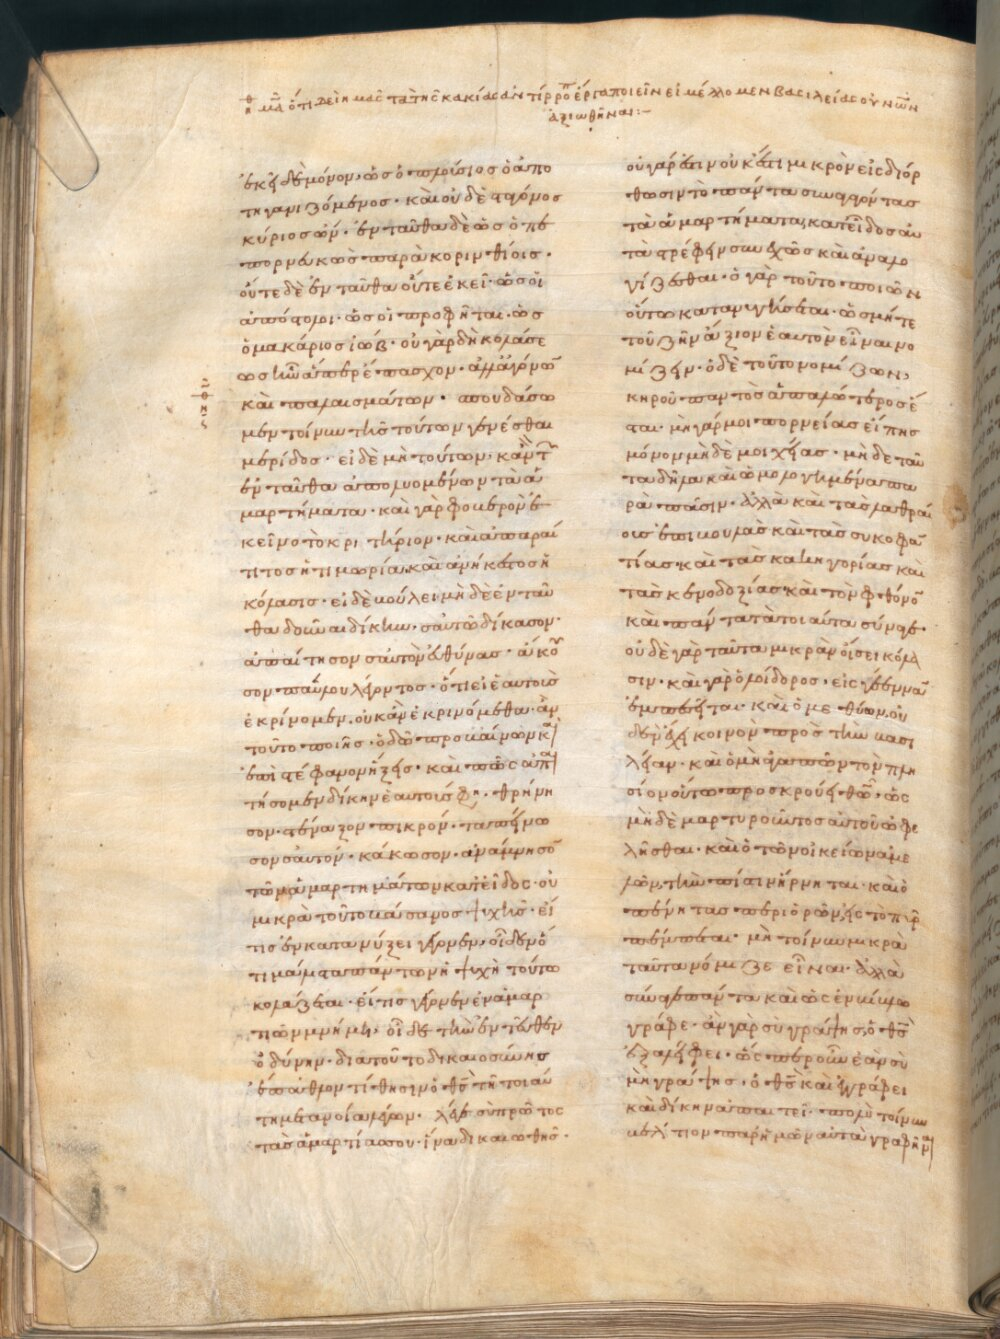 ὅτι δεῖ ἡμᾶς τὰ τῆς κακίας ἀντίρροπα ἔργα ποιεῖν εἰ μέλλομεν βασιλείας οὐνῶν
ἀξιωθῆναι:~
ἐκεῖ δὲ μόνον, ὡς ὁ πλούσιος ὁ ἀπο
τηγανιζόμενος· καὶ οὐδὲ σταγόνος
κύριος ὤν· ἐνταῦθα δὲ ὡς ὁ πε
πορνευκὼς παρὰ κορινθίοις·
οὔτε δὲ ἐνταῦθα οὔτε ἐκεῖ· ὡς οἱ
ἀπόστολοι· ὡς οἱ προφῆται· ὡς
ὁ μακάριος ἰώβ· οὐ γὰρ δὴ κολάσε
ως ἦν ἅπερ ἔπασχον· ἀλλ' ἀγώνων
καὶ παλαισμάτων· σπουδάσω
μεν τοίνυν τῆς τούτων γενέσθαι
μερίδος· εἰ δὲ μὴ τούτων, κἂν τῶν
ἐνταῦθα ἀπολυομένων τὰ ἁ
μαρτήματα· καὶ γὰρ φοβερὸν ἐ
κεῖνο τὸ κριτήριον· καὶ ἀπαραί
τητος ἡ τιμωρία, καὶ ἀνήκεστος ἡ
κόλασις· εἰ δὲ βούλει μὴ δὲ ἐνταῦ
θα δοῦναι δίκην· σαυτῷ δίκασον·
ἀπαίτησον σαυτὸν εὐθύνας· ἄκου
σον παύλου λέγοντος· ὅτι εἰ ἑαυτοὺς
ἐκρίνομεν, οὐκ ἂν ἐκρινόμεθα· ἂν
τοῦτο ποιῇς· ὁδῷ προβαίνων καὶ
ἐπὶ στέφανον ἥξεις· καὶ πῶς ἀπαι
τήσομεν δίκην ἑαυτοὺς φη· θρήνη
σον· στέναξον πικρόν· ταπείνω
σον σαυτόν· κάκωσον· ἀνάμνησον
τῶν ἁμαρτημάτων κατ' εἶδος· οὐ
μικρὰ τοῦτο βάσανος ψυχῆς· εἴ
τις ἐν κατανύξει γέγονεν, οἶδεν ὅ
τι μάλιστα πάντων ἡ ψυχὴ τούτῳ
κολάζεται· εἴ τις γέγονεν ἐν ἁμαρ
τιῶν μνήμῃ, οἶδε τὴν ἐντεῦθεν
ὀδύνην· διὰ τοῦτο δικαιοσύνης
ἔπαθλον τίθησιν ὁ θς τῇ τοιαύ
τῃ μετανοίᾳ λέγων· λέγε σὺ πρῶτος
τὰς ἁμαρτίας σου· ἵνα δικαιωθῇς·
οὐ γάρ ἐστιν οὐκ ἔστι μικρὸν εἰς διόρ
θωσιν τὸ πάντα συναγαγόντας
τὰ ἁμαρτήματα, κατ' εἶδος αὐ
τὰ στρέφειν συνεχῶς καὶ ἀναλο
γίζεσθαι· ὁ γὰρ τοῦτο ποιῶν
οὕτω κατανυγήσεται· ὡς μήτε
τοῦ ζῆν ἄξιον ἑαυτὸν εἶναι νο
μίζειν· ὁ δὲ τοῦτο νομίζων,
κηροῦ παντὸς ἁπαλώτερος ἔ
σται· μὴ γάρ μοι πορνείας εἴπῃς
μόνον μὴ δὲ μοιχείας· μὴ δὲ ταῦ
τα δῆλα καὶ ὡμολογημένα πα
ρὰ πᾶσιν· ἀλλὰ καὶ τὰς λαθραί
ους ἐπιβουλὰς καὶ τὰς συκοφαν
τίας· καὶ τὰς κατηγορίας καὶ
τὰς κενοδοξίας καὶ τὸν φθόνον
καὶ πάντα τὰ τοιαῦτα σύναγε·
οὐδὲ γὰρ ταῦτα μικρὰν οἴσει κόλα
σιν· καὶ γὰρ ὁ λοίδορος, εἰς γέενναν
ἐμπεσεῖται· καὶ ὁ μεθύων, οὐ
δὲν ἔχει κοινὸν πρὸς τὴν βασι
λείαν· καὶ ὁ μὴ ἀγαπῶν τὸν πλη
σίον οὕτω προσκρούει θεῷ, ὡς
μὴ δὲ μαρτυροῦντος αὐτοῦ ὠφε
λῆσθαι· καὶ ὁ τῶν οἰκείων ἀμε
λῶν, τὴν πίστιν ἤρνηται· καὶ ὁ
πένητας περιορῶν, εἰς τὸ πῦρ
πέμπεται· μὴ τοίνυν μικρὰ
ταῦτα νόμιζε εἶναι· ἀλλὰ
σύναγε πάντα καὶ ὡς ἐν βιβλίῳ
γράφε· ἂν γὰρ σὺ γράψῃς, ὁ θς
ἐξαλείφει· ὥσπερ οὖν ἐὰν σὺ
μὴ γράψῃς· ὁ θς καὶ ἐγγράφει
καὶ δίκην ἀπαιτεῖ· πολὺ τοίνυν
βέλτιον παρ' ἡμῶν αὐτὰ γραφῆναι